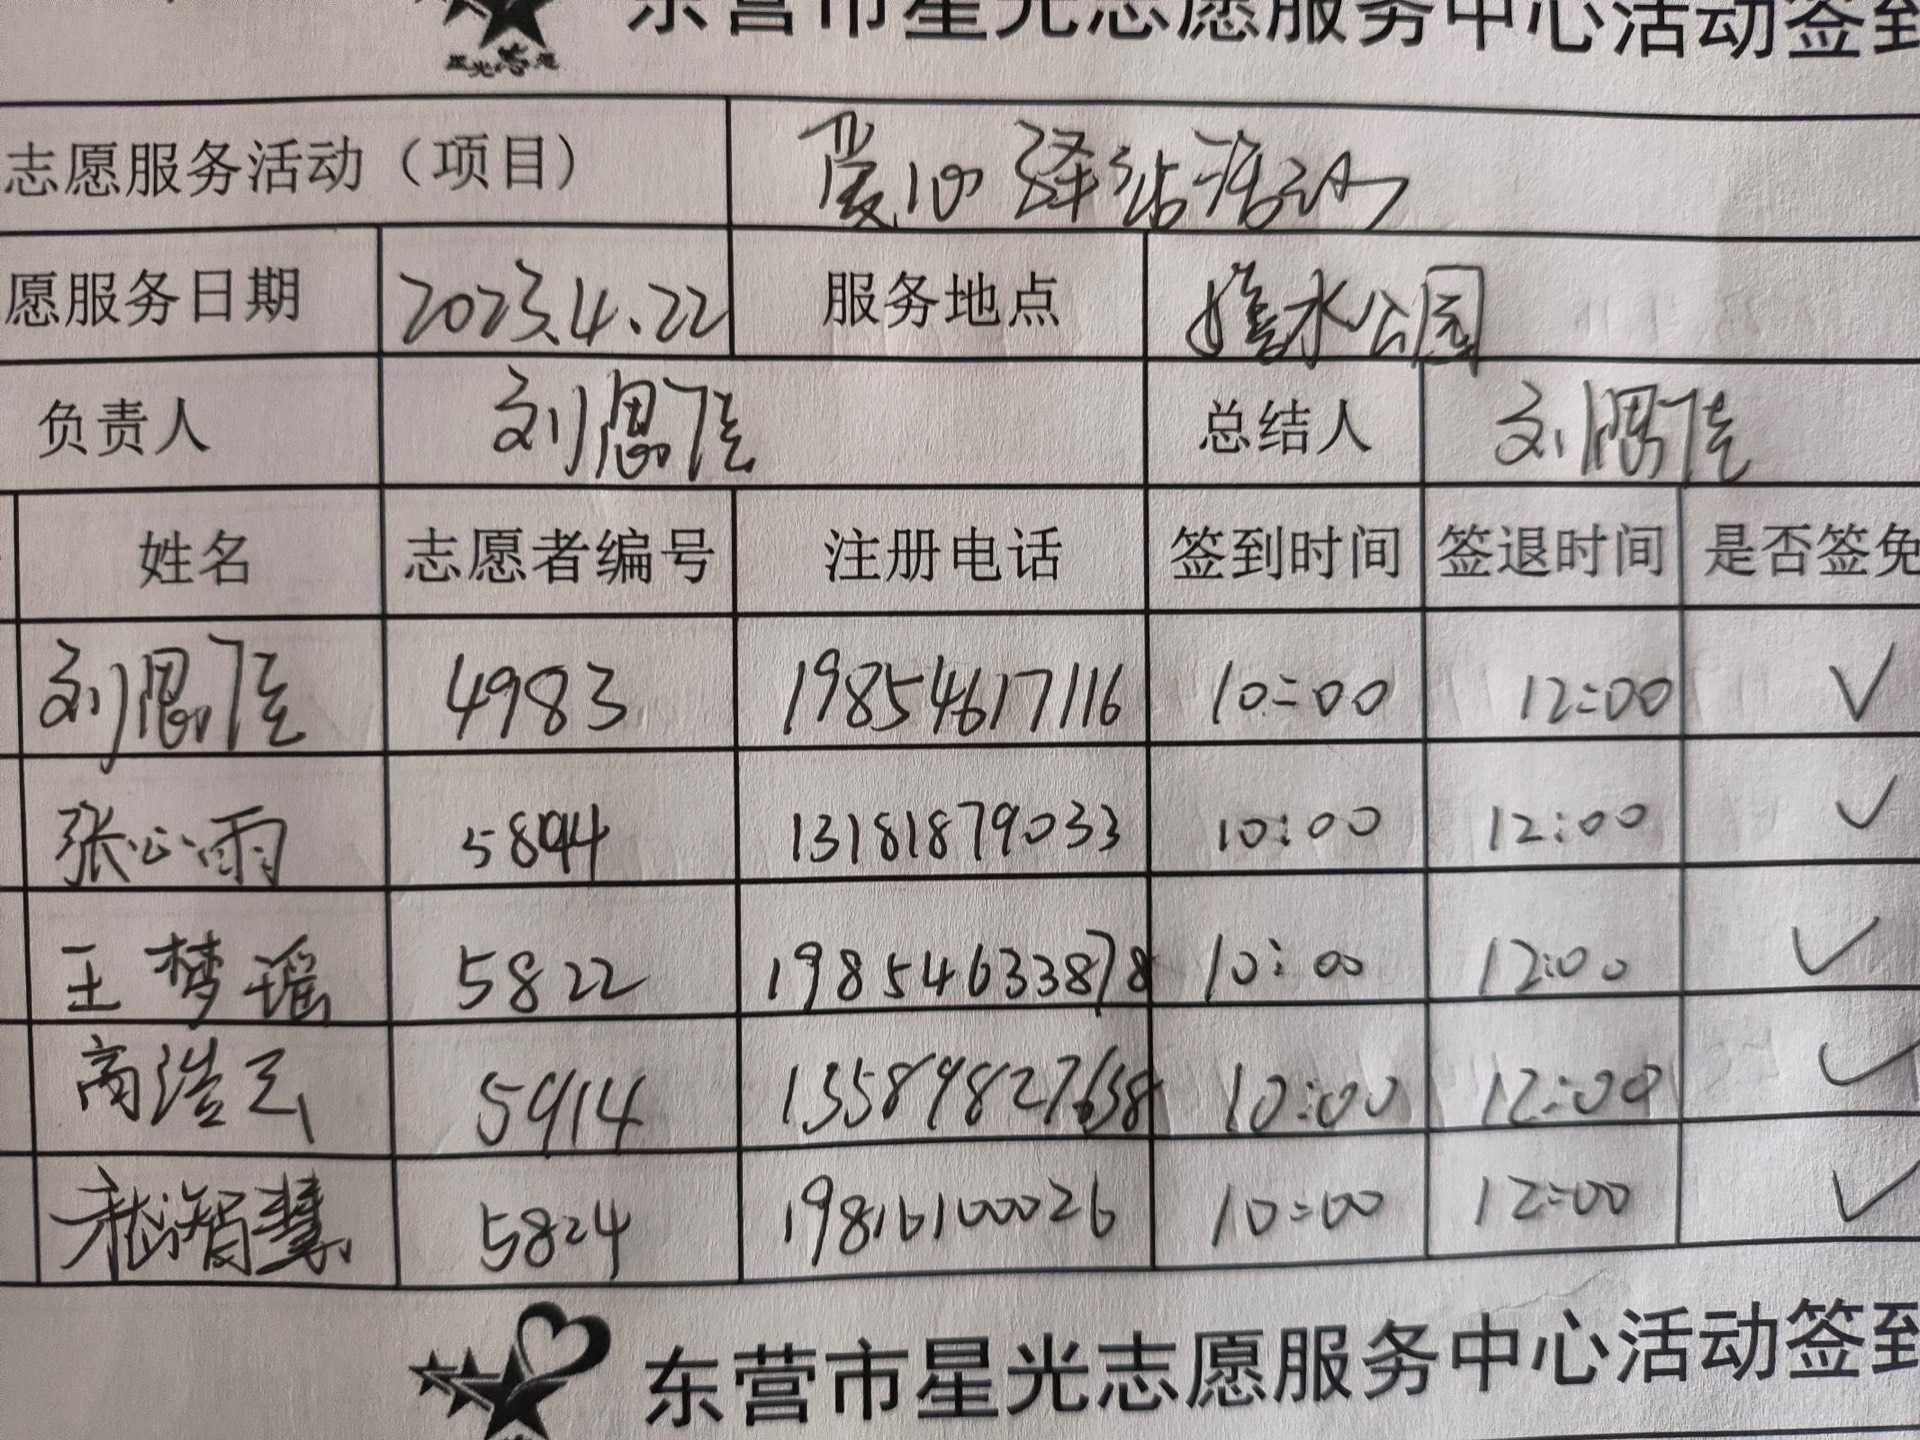 东营市星光志愿服务中心活动签到
星光志愿
志愿服务活动（项目） 爱心驿站活动
愿服务日期 2023.4.22 服务地点 水公园
负责人 刘愚佳 总结人 刘愚佳
姓名 志愿者编号 注册电话 签到时间 签退时间 是否签免
刘愚佳 4983 19854617116 10:00 12:00 ✓
张心雨 5894 13181879033 10:00 12:00 ✓
王梦瑶 5822 19854633878 10:00 12:00 ✓
商浩云 5914 13589827638 10:00 12:00 ✓
嵇智慧 5824 19816100026 10:00 12:00 ✓
东营市星光志愿服务中心活动签到